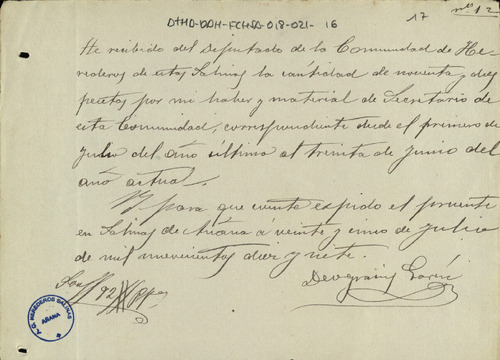 ATHA-DAH-FCHSA-018-021-16
17
nº 12
He recibido del Diputado de la Comunidad de He-
rederos de estas Salinas la cantidad de noventa y dos
pesetas por mi haber y material de Secretario de
esta Comunidad, correspondiente desde el primero de
Julio del año último al treinta de Junio del
año actual.
Y para que conste expido el presente
en Salinas de Añana á veinte y cinco de Julio
de mil novecientos diez y siete.
Son 92 Ptas
Deogracias
HEREDEROS SALINAS
AÑANA